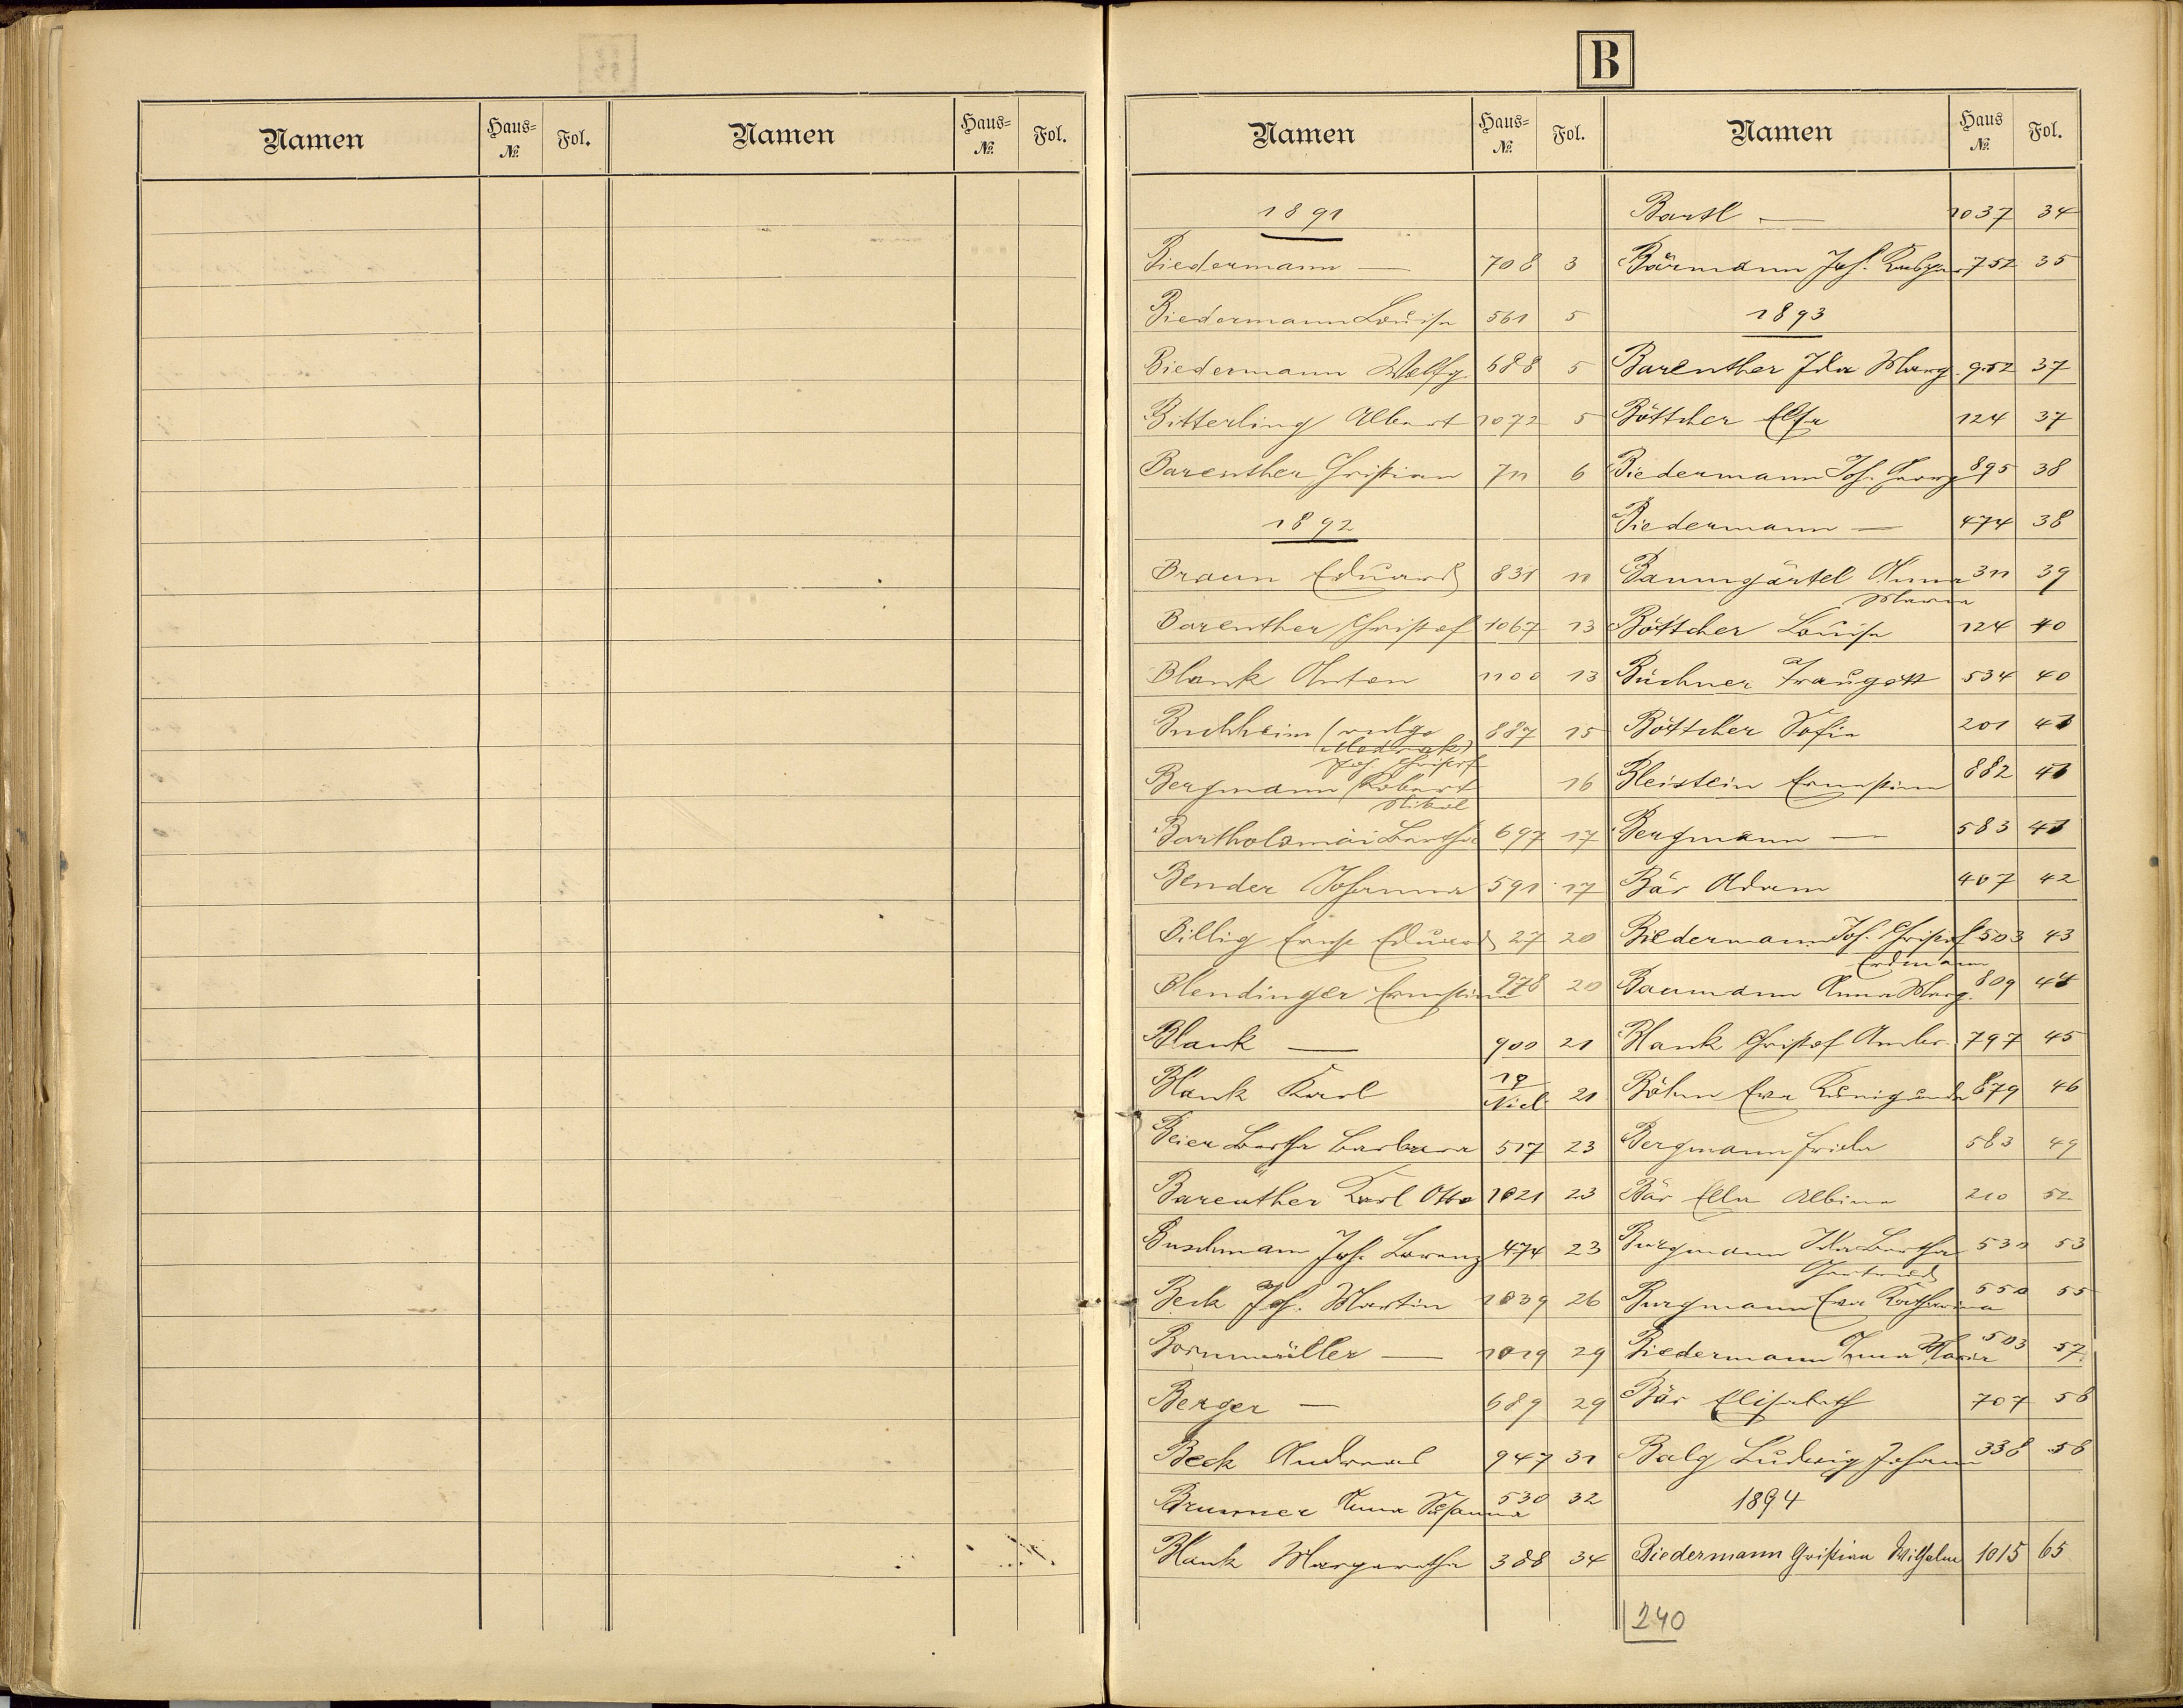 B
Namen Haus-№ Fol. Namen Haus-№ Fol.
Namen Haus-№ Fol. Namen Haus №. Fol.
1891
Biedermann — 708 3
Biedermann Louise 561 5
Biedermann Wolfg. 688 5
Bitterling Albert 1072 5
Barenther Christian 711 6
1892
Braun Eduard 831 11
Barenther Christof 1067 13
Blank Anton 1100 13
Buchheim (vulgo 887 15
Modrak)
Joh. Christof
Bergmann Robert 16
Nikol
Bartholomäi Bertha 697 17
Bender Johanna 591 17
Billig Ernst Eduard 27 20
Blendinger Ernstine 978 20
Blank — 900 21
Blank Karl 19 Nied. 21
Beier Bertha Barbara 517 23
Bareuther Karl Otto 1021 23
Buschmann Joh. Lorenz 474 23
Beck Joh. Martin 1039 26
Bornmüller — 1019 29
Berger — 689 29
Beck Andreas 947 31
Brunner Anna Susanna 530 32
Blank Margaretha 388 34
Bartl — 1037 34
Bärmann Joh. Kaspar 752 35
1893
Barenther Ida Marg. 952 37
Böttcher Elsa 124 37
Biedermann Joh. Georg 895 38
Biedermann — 474 38
Baumgärtel Anna 311 39
Maria
Böttcher Louise 124 40
Büchner Traugott 534 40
Böttcher Sofie 201 41
Bleistein Ernstine 882 41
Bergmann — 583 41
Bär Adam 407 42
Biedermann Joh. Christof 503 43
Erdmann
Baumann Anna Marg. 809 44
Blank Christof Ambr. 797 45
Böhm Eva Kunigunda 879 46
Bergmann Frieda 583 49
Bär Ella Albine 210 52
Burgmann Ida Bertha 531 53
Gertrud
Burgmann Eva Katharina 550 55
Biedermann Anna Maria 503 57
Bär Elisabeth 707 58
Balg Ludwig Johann 338 58
1894
Biedermann Christian Wilhelm 1015 65
240